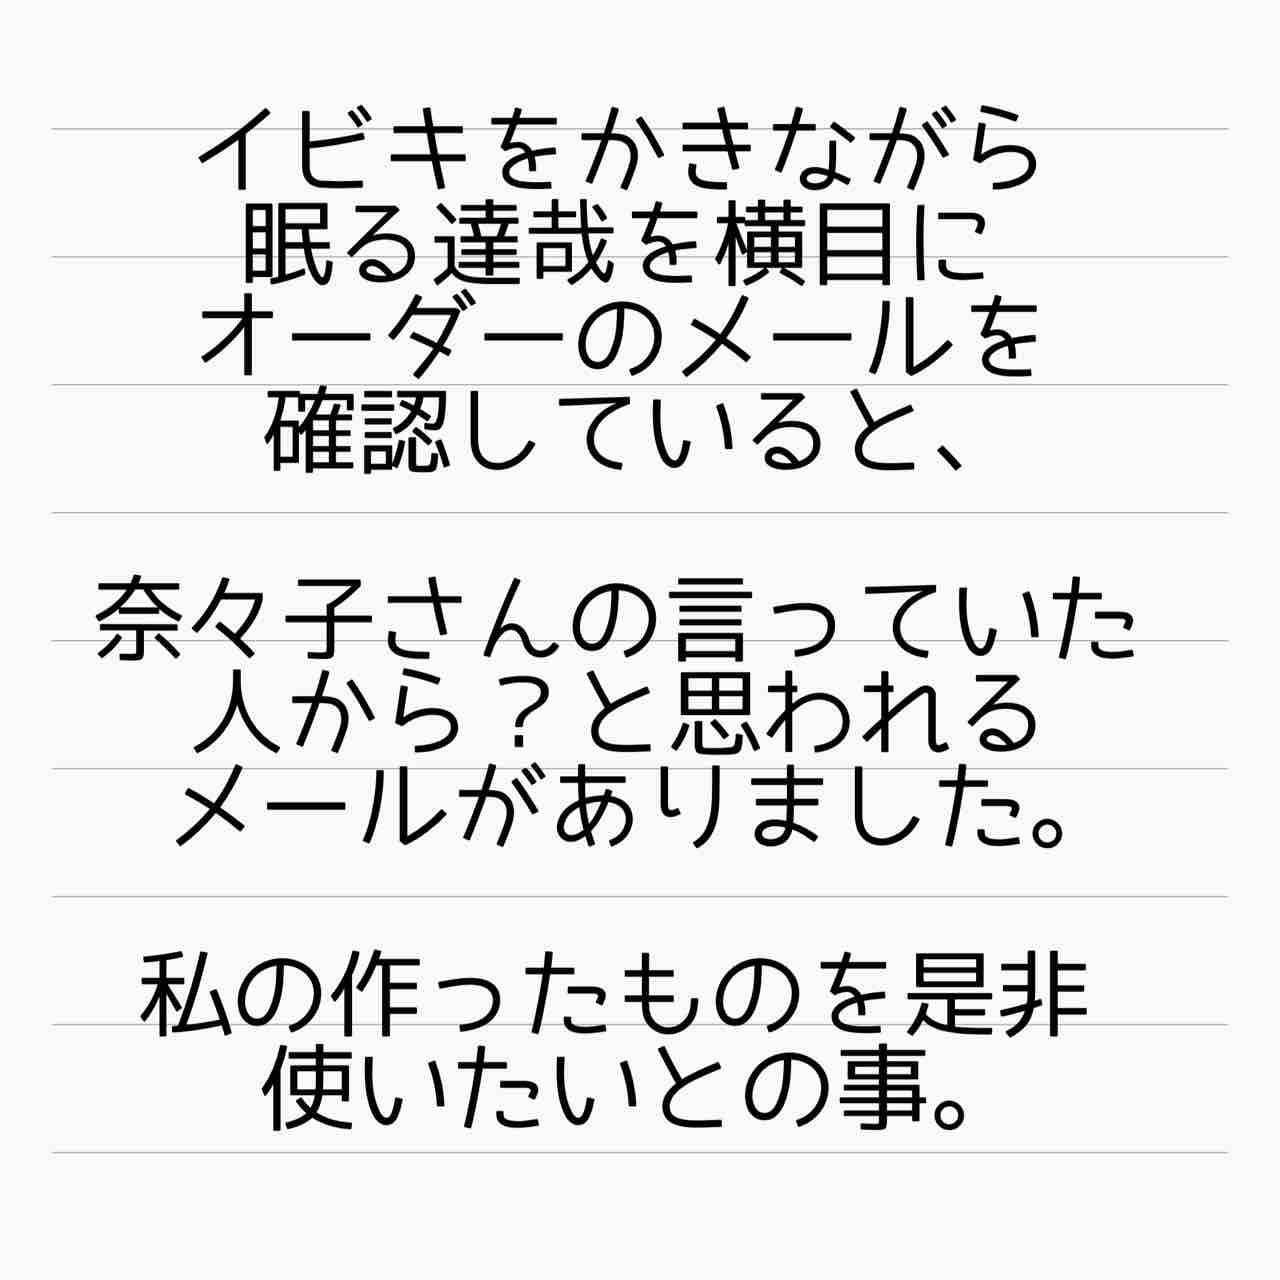 イビキをかきながら
眠る達哉を横目に
オーダーのメールを
確認していると、
奈々子さんの言っていた
人から？と思われる
メールがありました。
私の作ったものを是非
使いたいとの事。